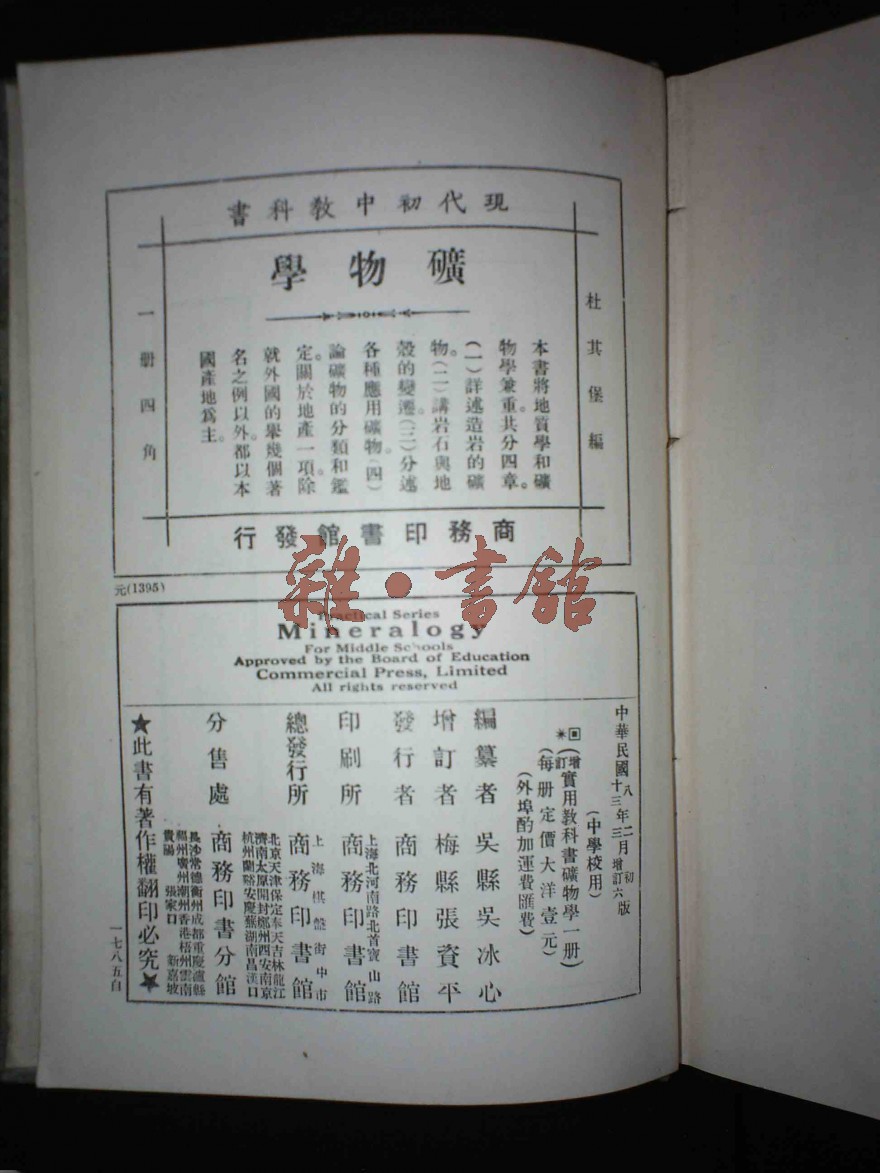 現代初中教科書
礦物學
杜其堡編
本書將地質學和礦
物學兼重。共分四章。
(一)詳述造岩的礦
物。(二)講岩石與地
殼的變遷。(三)分述
各種應用礦物。(四)
論礦物的分類和鑑
定。關於地產一項除
就外國的舉幾個著
名之例以外。都以本
國產地爲主。
一册四角
商務印書館發行
元(1395)
雜·書館
Practical Series
Mineralogy
For Middle Schools
Approved by the Board of Education
Commercial Press, Limited
All rights reserved
中華民國八年二月初版
十三年三月增訂六版
(中學校用)
(增訂實用教科書礦物學一册)
(每册定價大洋壹元)
(外埠酌加運費匯費)
編纂者 吳縣吳冰心
增訂者 梅縣張資平
發行者 商務印書館
上海北河南路北首寶山路
印刷所 商務印書館
上海棋盤街中市
總發行所 商務印書館
北京天津保定奉天吉林龍江
濟南太原開封鄭州西安南京
杭州蘭谿安慶蕪湖南昌漢口
分售處 商務印書分館
長沙常德衡州成都重慶瀘縣
福州廣州潮州香港梧州雲南
貴陽 張家口 新嘉坡
★此書有著作權翻印必究★
一七八五自